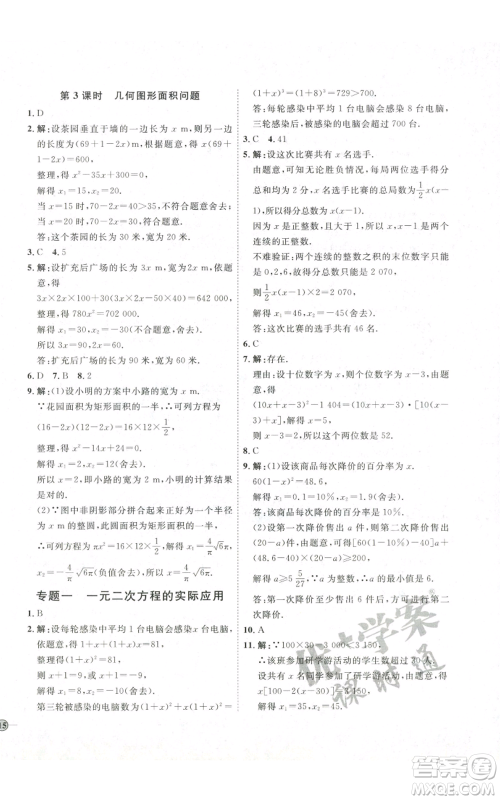 第 3 课时　几何图形面积问题
1. D
2. 解：设茶园垂直于墙的一边长为 x m，则另一边
的长度为(69+1-2x) m，根据题意，得
x(69+1-2x)=600，
整理，得 x²-35x+300=0，
解得 x₁=15，x₂=20，
当 x=15 时，70-2x=40>35，不符合题意舍去；
当 x=20 时，70-2x=30，符合题意.
答：这个茶园的长为 30 米，宽为 20 米.
3. C　4. 5
5. 解：设扩充后广场的长为 3x m，宽为 2x m，依题
意，得
3x×2x×100+30(3x×2x-50×40)=642 000，
整理，得 780x²=702 000，
解得 x₁=30，x₂=-30(舍去).
所以 3x=90，2x=60.
答：扩充后广场的长为 90 m，宽为 60 m.
6. D　7. B　8. 2
9. 解：(1)设小明的方案中小路的宽为 x m.
∵花园面积为矩形面积的一半，∴可列方程为
(16-2x)(12-2x)=16×12×1/2，
整理，得 x²-14x+24=0，
解得 x₁=2，x₂=12(舍去)，
则小明的结果不对，由解可得，小路的宽为 2 m.
答：小明的结果不对，小路的宽为 2 m 的计算结果
是对的.
(2)∵图中非阴影部分可拼合成一个圆且半径为
x m，其面积为矩形面积的一半，
∴可列方程为 πx²=16×12×1/2，解得 x₁=4/π √6π，
x₂=-4/π √6π(舍去)，∴x=4/π √6π.
专题一　一元二次方程的实际应用
1. B
2. 解：设每轮感染中平均 1 台电脑会感染 x 台电脑，
由题意得 1+x+x(1+x)=81.
整理得(1+x)²=81，
解得 x₁=8，x₂=-10(舍去)，
第三轮被感染的电脑数为(1+x)²+x(1+x)²=
(1+x)³=(1+8)³=729>700.
答：每轮感染中平均 1 台电脑会感染 8 台电脑，
三轮感染后，被感染的电脑会超过 700 台.
3. C　4. 41
5. 解：设这次比赛共有 x 名选手.
由题意，可知无论胜负情况，每局两名选手总计得
分均为 2 分，这次比赛选手的总局数为 1/2 x(x-
1)，所以得分总数为 x(x-1)分.
因为 x 为大于 1 的正整数，所以 x 与 x-1 为连续
的正整数.
不难验证：两个连续的整数之积的末位数字只可
能是 0，2，6，故总分只可能是 2 070，
则 1/2 x(x-1)×2=2 070，
解得 x₁=46，x₂=-45(舍去).
答：这次比赛的选手共有 46 名.
6. C
7. 解：存在.
理由：设十位数字为 x，则个位数字为 x-3，根据
题意，得
(10x+x-3)²-1 404=(10x+x-3)×
[10(x-3)+x]，
解得 x=5，则 x-3=2.
则：存在，这个两位数为 52.
8. C
9. 解：(1)设该商品每次降价的百分率为 x.
60(1-x)²=48.6，
解得 x₁=0.1=10%，x₂=1.9(舍去).
答：该商品每次降价的百分率为 10%.
(2)设第一次降价售出 a 件，则第二次降价售出
(20-a)件.由题意，得[60(1-10%)-40]a+
(48.6-40)×(20-a)≥200，
解得 a≥5 5/27，∵a 为整数，∴a 的最小值是 6.
答：第一次降价至少售出 6 件后，方可进行第二次
降价.
10. A
11. 解：∵100×30=3 000<3 150，
∴该班参加研学游活动的学生数超过 30 人.
设共有 x 名同学参加了研学游活动，由题意得
x[100-2(x-30)]=3 150，
解得 x₁=35，x₂=45，
15